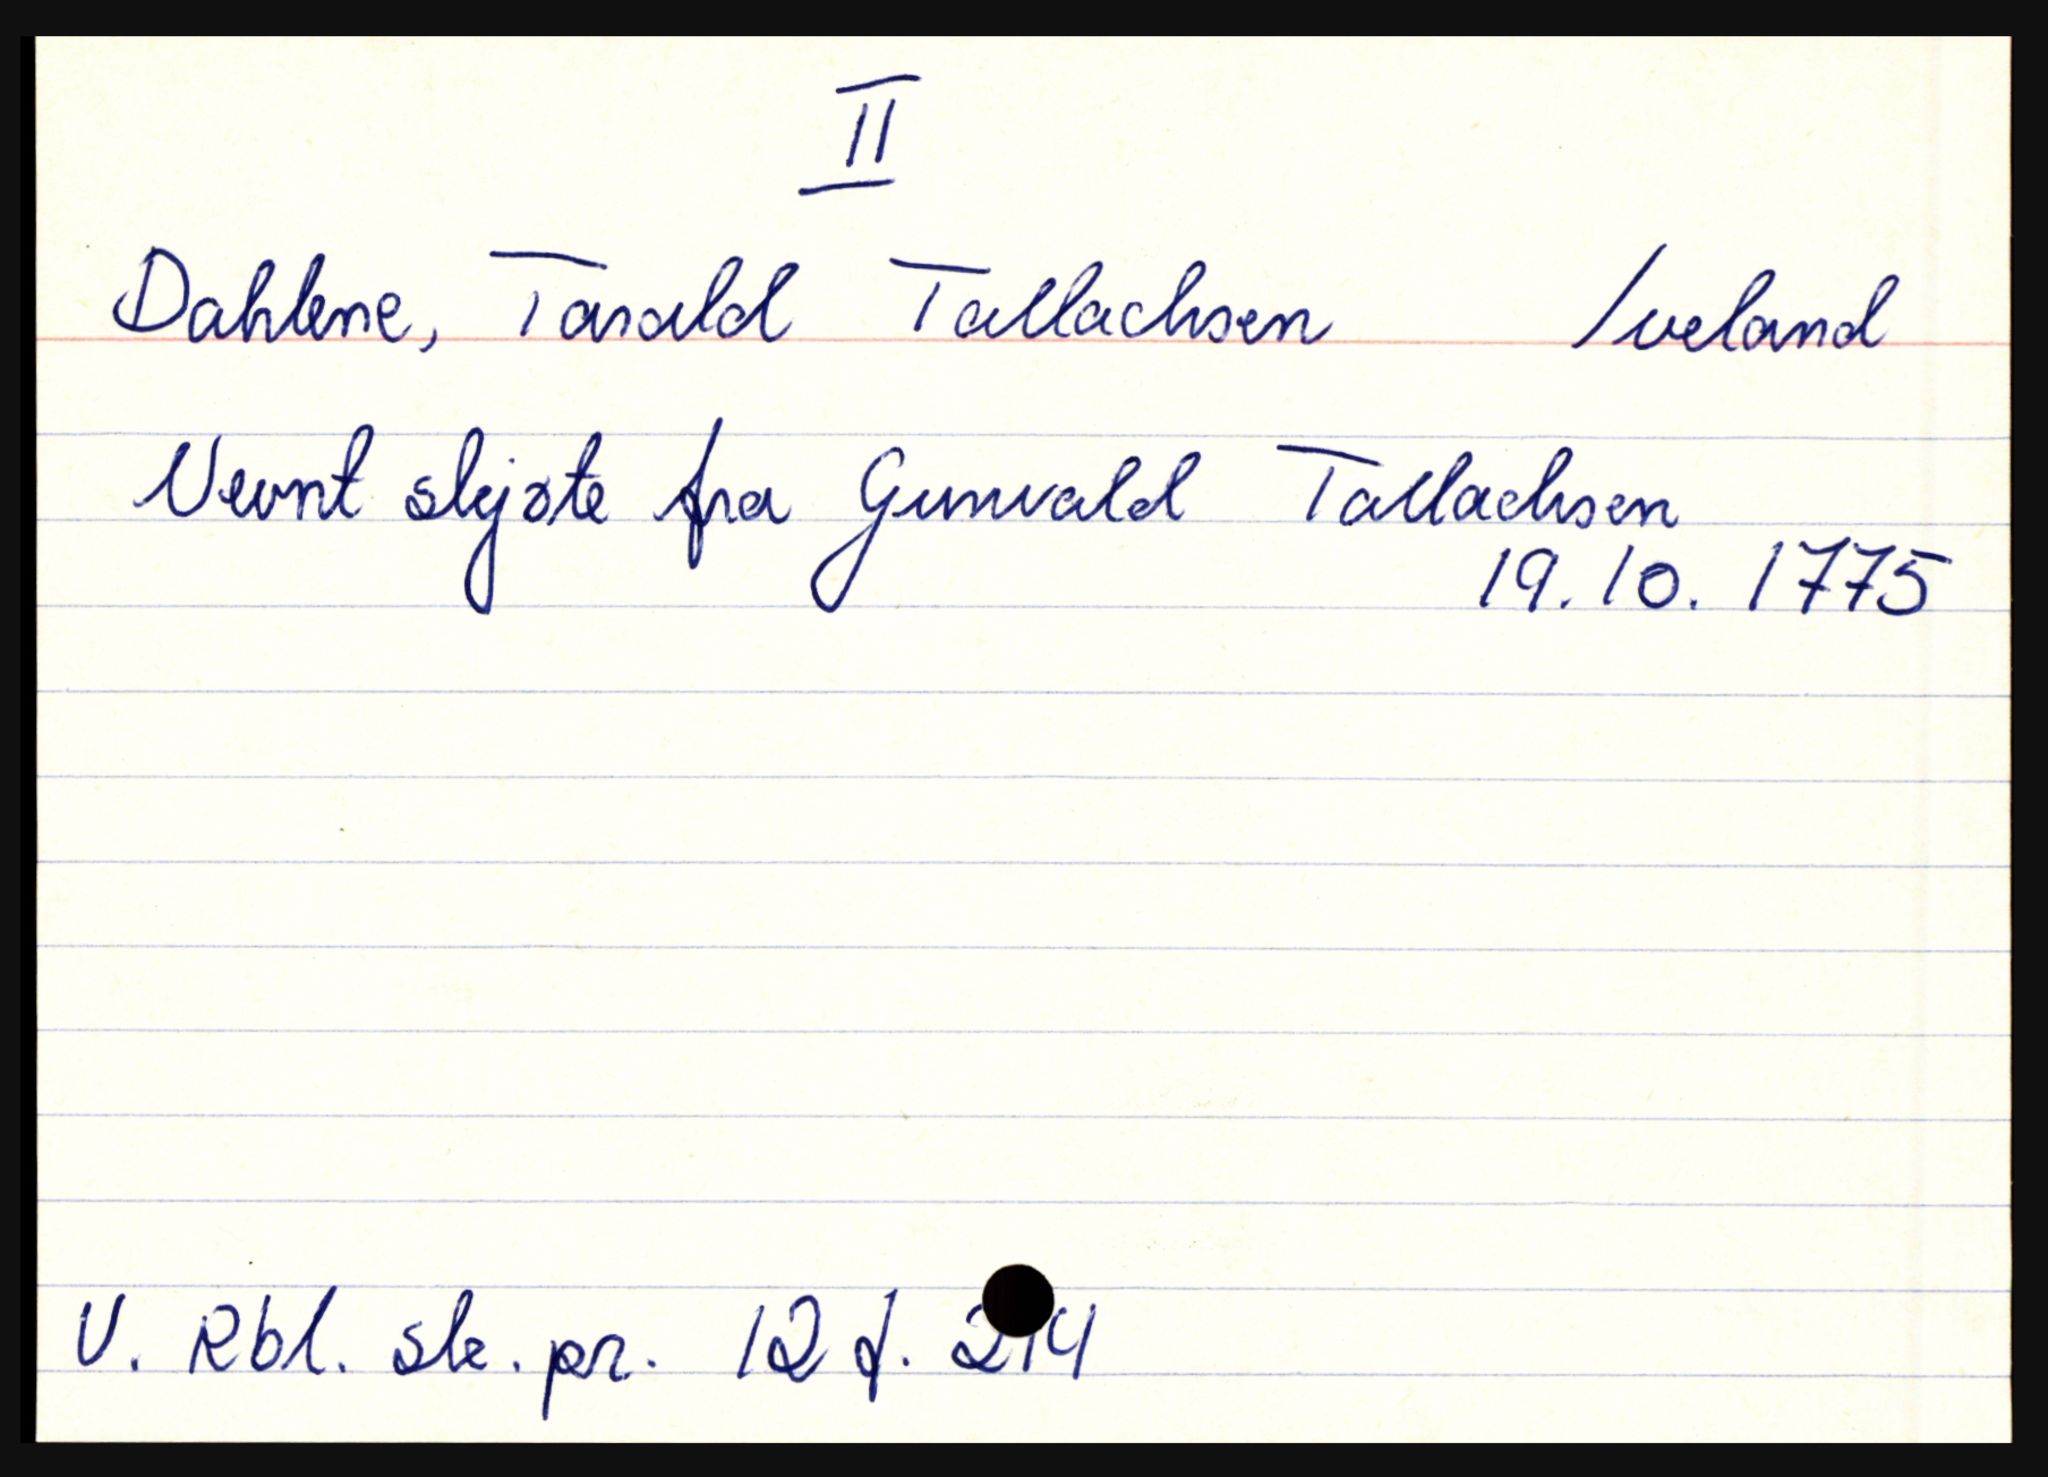 II
Dahlene, Tarald Tallachsen Iveland
Nevnt skjøte fra Gunvald Tallachsen
19.10.1775
V. Rbl. sk. pr. 12 f. 214